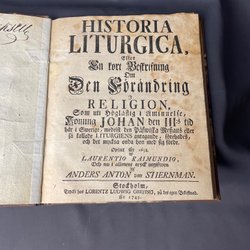 HISTORIA
LITURGICA,
Eller
En kort Beskrifning
Om
Den Förändring
I
RELIGION,
Som uti Högloflig i Åminnelse,
Konung JOHAN den III:s tid
här i Swerige, medelst den Påfwiska Messans eller
så kallade LITURGIENS antagande, förehades,
och det mycket onda hon med sig förde.
Opsatt År 1638.
Af
LAURENTIO RAIMUNDIO,
Och nu i allmänt tryck utgifwen
af
ANDERS ANTON von STIERNMAN.
Stockholm,
Tryckt hos LORENTZ LUDWIG GREFING, på des egen Bekostnad.
År 1745.